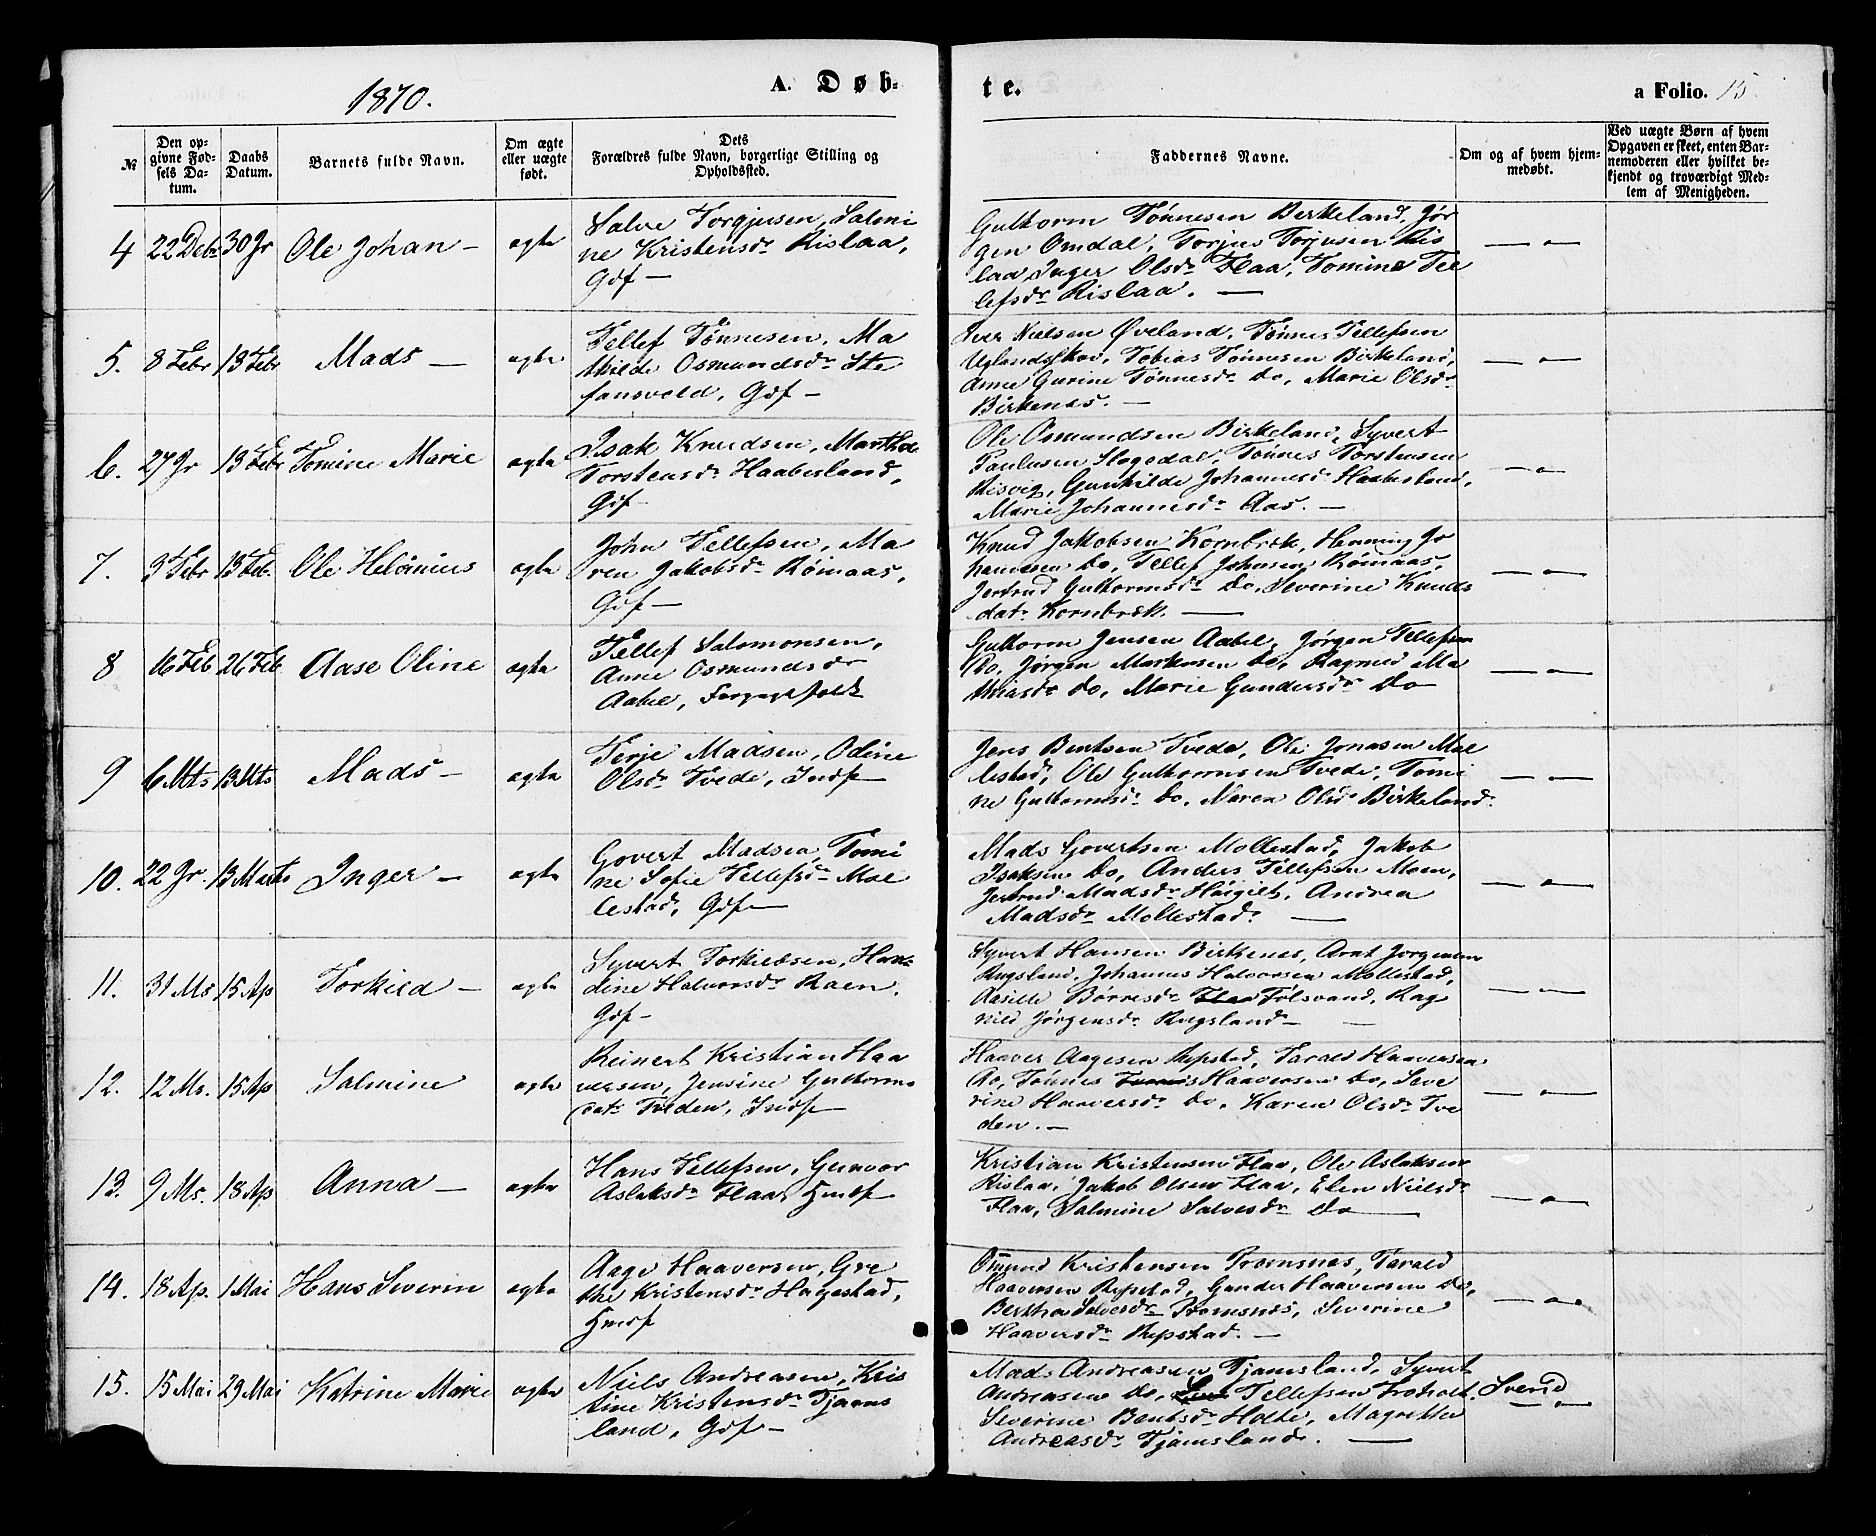 1870.
A. Døb-
te.
a Folio. 15.
№
Den op-
givne Fød-
sels Da-
tum.
Daabs
Datum.
Barnets fulde Navn.
Om ægte
eller uægte
født.
Dets
Forældres fulde Navn, borgerlige Stilling og
Opholdssted.
Faddernes Navne.
Om og af hvem hjem-
medøbt.
Ved uægte Børn af hvem
Opgaven er skeet, enten Bar-
nemoderen eller hvilket be-
kjendt og troværdigt Med-
lem af Menigheden.
4 22 Debr 30 Jr Ole Johan – ægte
Salve Torgjusen, Salmi
ne Kristensdr Rislaa,
Gdf –
Guttorm Tønnesen Birkeland, Jør
gen Omdal, Torjus Torjusen Ris
laa, Inger Olsdr Flaa, Tomine Tel
lefsdr Rislaa. –
5. 8 Febr 13 Febr Mads – ægte
Tellef Tønnesen, Ma
thilde Osmundsdr Ste
fansvold, Gdf –
Iver Nielsen Øveland, Tønnes Tellefsen
Uglandsskov, Tobias Tønnesen Birkeland,
Anne Gurine Tønnesdr Do, Marie Olsdr
Birkenes. –
6. 27 Jr 13 Febr Tomine Marie ægte
Isak Knudsen, Marthe
Torstensdr Haabesland,
Gdf –
Ole Osmundsen Birkeland, Syvert
Paulusen Høgedal, Tønnes Torstensen
Risvig, Gunhilde Johannesdr Haabesland,
Marie Johannesdr Aas. –
7. 3 Febr 13 Feb. Ole Helonius ægte
John Tellefsen, Ma
ren Jakobsdr Rømaas,
Gdf –
Knud Jakobsen Kornbrek, Henning Jo
hannesen Do, Tellef Johnsen Rømaas,
Jertrud Guttormsdr Do, Severine Knuds
datr Kornbrek. –
8 16 Feb 26 Feb Aase Oline ægte
Tellef Salomonsen,
Anne Osmundsdr
Aabel,
Guttorm Jensen Aabel, Jørgen Tellefsen
Do, Jørgen Markusen Do, Ragnild Ma
thiasdr Do, Marie Gundersdr Do
9 6 Mts 13 Mts Mads – ægte
Terje Madsen, Odine
Olsdr Tvede, Indf –
Jens Bentsen Tvede, Ole Jonasen Mol
lestad, Ole Guttormsen Tvede, Tomi
ne Guttormsdr Do, Maren Olsdr Birkeland.
10. 22 Jr. 13 Marts Inger – ægte
Govert Madsen, Tomi
ne Sofie Tellefsdr Mol
lestad, Gdf –
Mads Govertsen Mollestad, Jakob
Isaksen Do, Anders Tellefsen Moen,
Jertrud Madsdr Høigilt, Andrea
Madsdr Mollestad. –
11. 31 Ms 15 Ap Torkild – ægte
Syvert Torkildsen, Han
dine Halvorsdr Raen,
Gdf –
Syvert Hansen Birkenes, Arnt Jørgensen
Rugsland, Johannes Halvorsen Mollestad,
Aasille Børresdr Følsvand, Rag
nild Jørgensdr Rugsland –
12. 12 Ms. 15 Ap Salmine ægte
Reinert Kristian Haa
versen, Jensine Guttorms
datr Tveden, Indf –
Haaver Aagesen Repstad, Tarald Haaversen
Do, Tønnes Haaversen Do, Seve
rine Haaversdr Do, Karen Olsdr Tve
den. –
13. 9 Ms. 18 Ap Anna – ægte
Hans Tellefsen, Gunvor
Aslaksdr Flaa, Hmdf
Kristian Kristensen Flaa, Ole Aslaksen
Rislaa, Jakob Olsen Flaa, Elen Nielsdr
Flaa, Salmine Salvesdr Do
14. 18 Ap. 1 Mai Hans Severin ægte
Aage Haaversen, Gre
the Kristensdr Hagestad,
Hmdf
Omund Kristensen Tromsnes, Tarald
Haaversen Repstad, Gunder Haaversen Do,
Berthe Salvesdr Tromsnes, Severine
Haaversdr Repstad. –
15. 15 Mai 29 Mai Katrine Marie ægte
Niels Andreasen, Kris
tine Kristensdr Tjams
land, Gdf –
Mads Andreasen Tjamsland, Syvert
Andreasen Do, Tellefsen Froholt, Svend
Severine Bentsdr Holte, Magrethe
Andreasdr Tjamsland. –